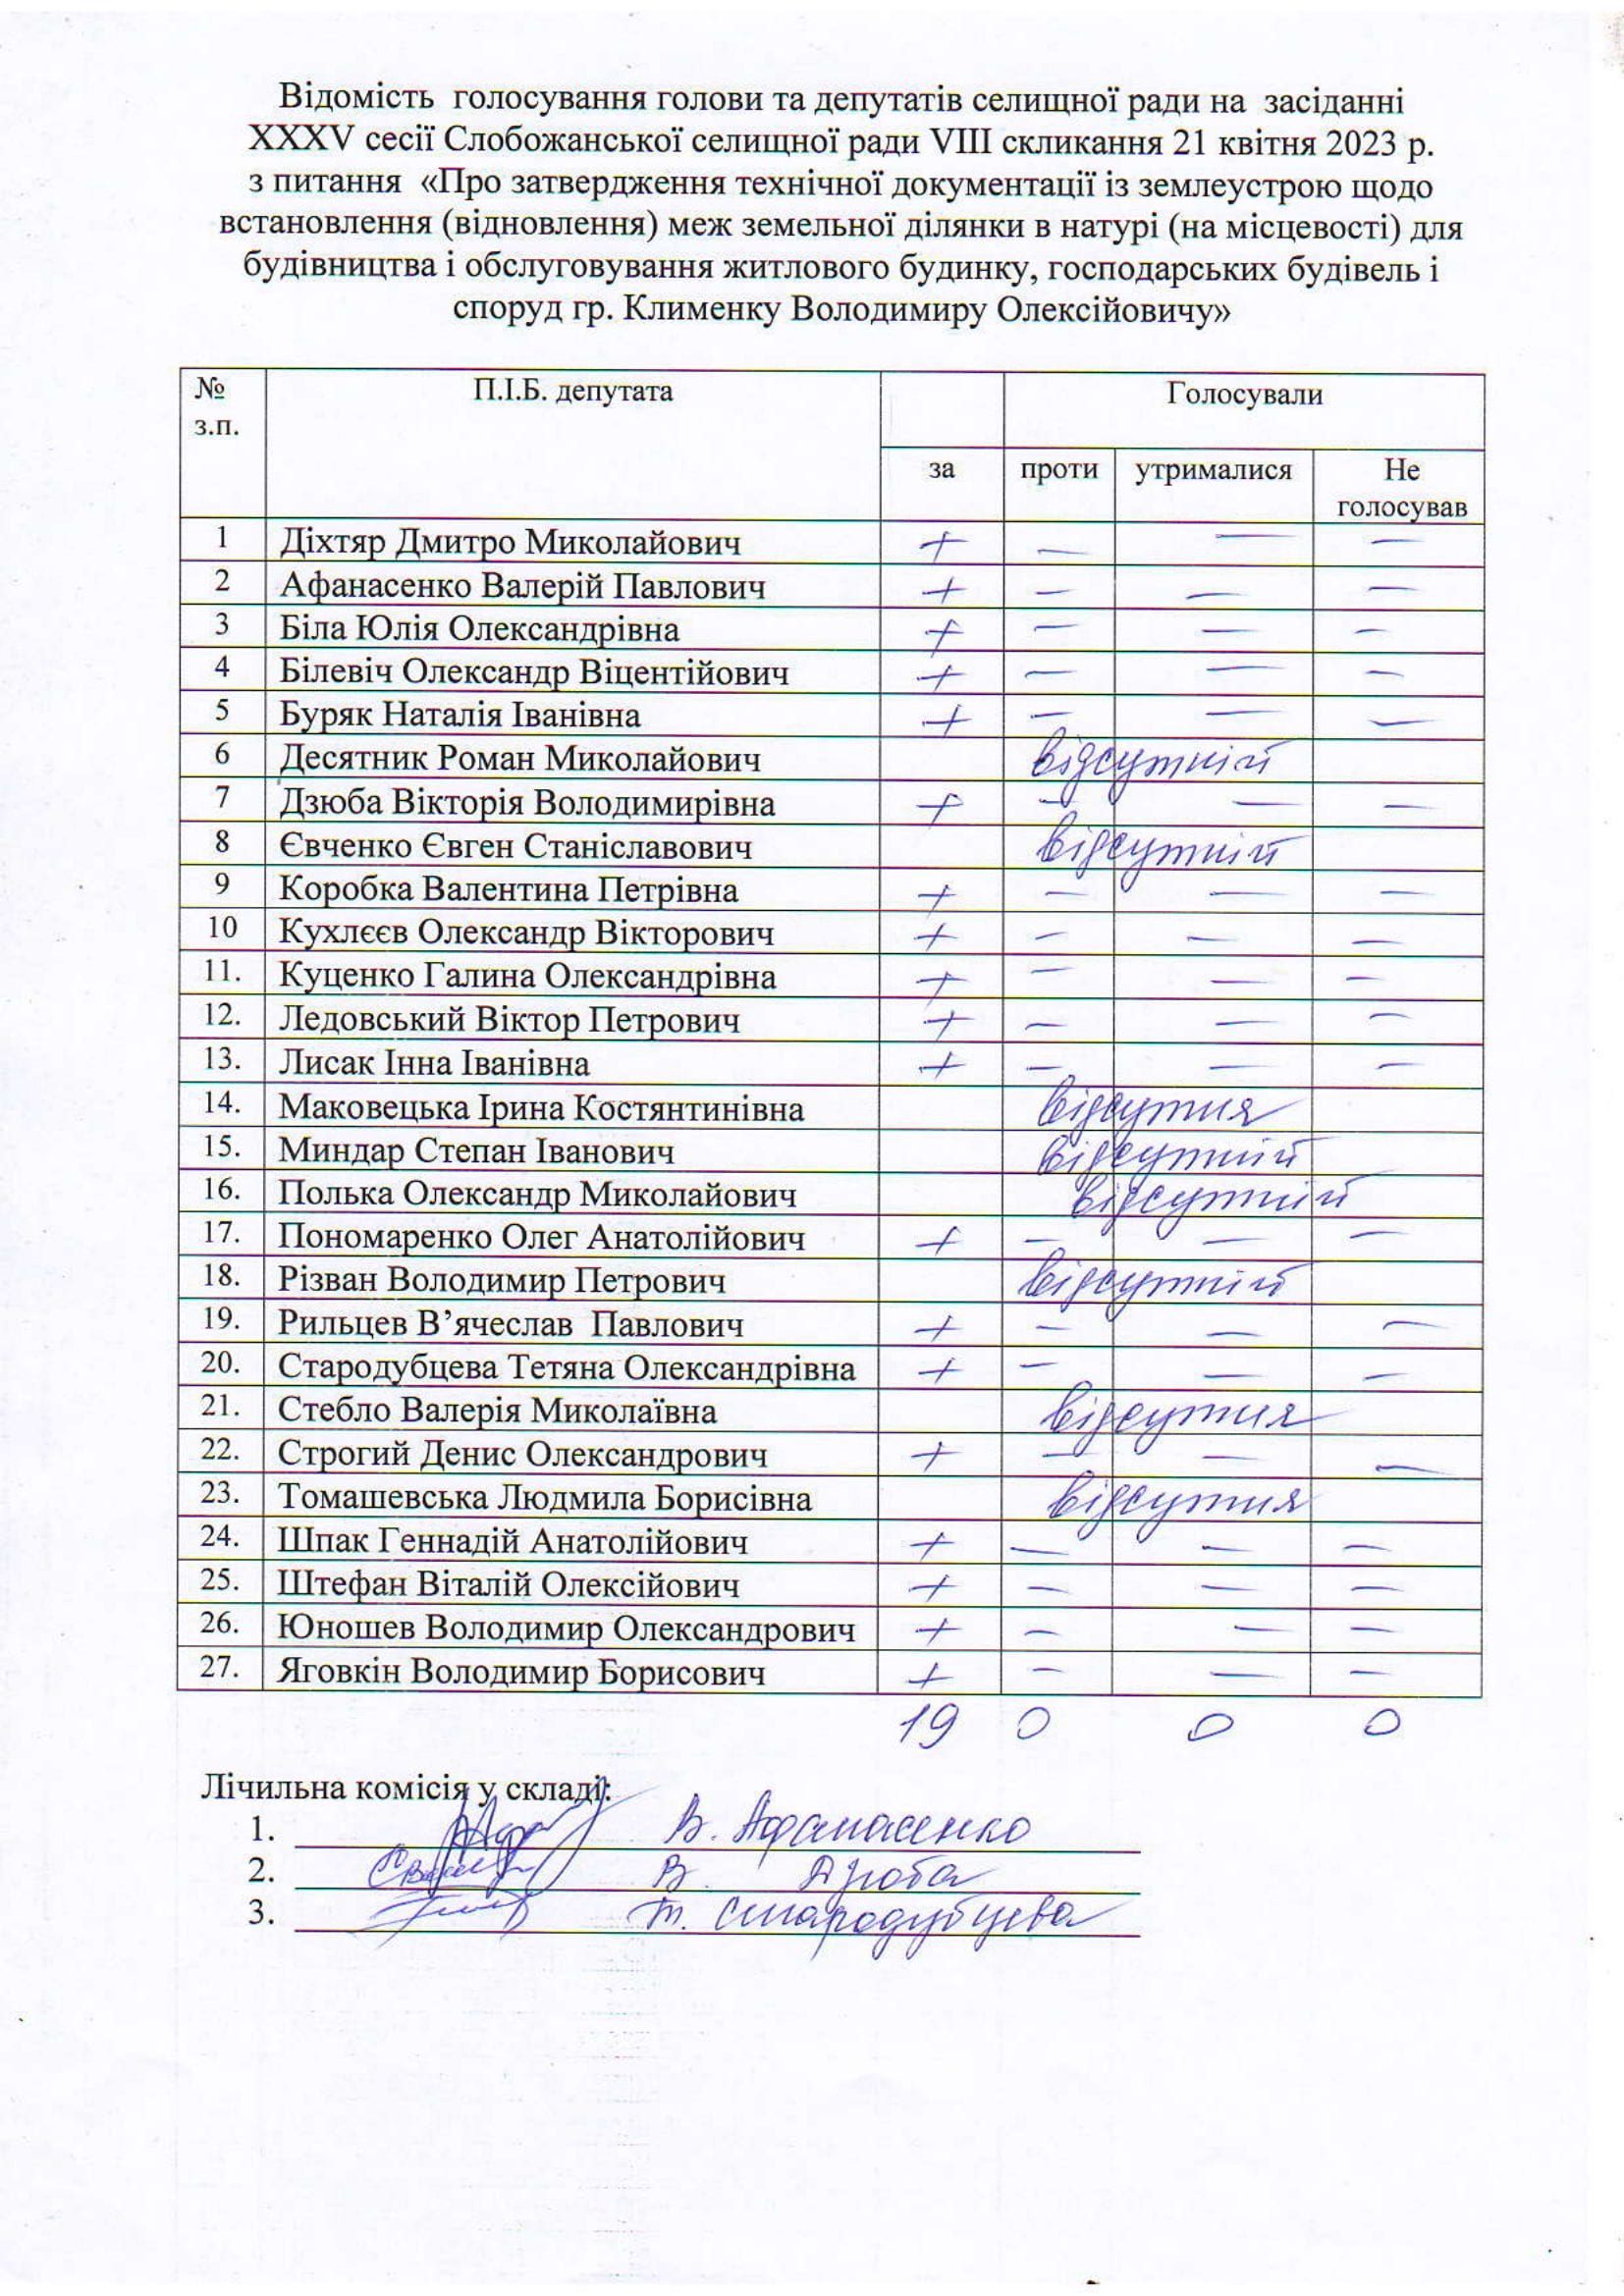 Відомість голосування голови та депутатів селищної ради на засіданні
XXXV сесії Слобожанської селищної ради VIII скликання 21 квітня 2023 р.
з питання «Про затвердження технічної документації із землеустрою щодо
встановлення (відновлення) меж земельної ділянки в натурі (на місцевості) для
будівництва і обслуговування житлового будинку, господарських будівель і
споруд гр. Клименку Володимиру Олексійовичу»
№ з.п. П.І.Б. депутата Голосували
за проти утрималися Не голосував
1 Діхтяр Дмитро Миколайович + — — —
2 Афанасенко Валерій Павлович + — — —
3 Біла Юлія Олександрівна + — — —
4 Білевіч Олександр Віцентійович + — — —
5 Буряк Наталія Іванівна + — — —
6 Десятник Роман Миколайович відсутній
7 Дзюба Вікторія Володимирівна + — — —
8 Євченко Євген Станіславович відсутній
9 Коробка Валентина Петрівна + — — —
10 Кухлєєв Олександр Вікторович + — — —
11. Куценко Галина Олександрівна + — — —
12. Ледовський Віктор Петрович + — — —
13. Лисак Інна Іванівна + — — —
14. Маковецька Ірина Костянтинівна відсутня
15. Миндар Степан Іванович відсутній
16. Полька Олександр Миколайович відсутній
17. Пономаренко Олег Анатолійович + — — —
18. Різван Володимир Петрович відсутній
19. Рильцев В’ячеслав Павлович + — — —
20. Стародубцева Тетяна Олександрівна + — — —
21. Стебло Валерія Миколаївна відсутня
22. Строгий Денис Олександрович + — — —
23. Томашевська Людмила Борисівна відсутня
24. Шпак Геннадій Анатолійович + — — —
25. Штефан Віталій Олексійович + — — —
26. Юношев Володимир Олександрович + — — —
27. Яговкін Володимир Борисович + — — —
19 0 0 0
Лічильна комісія у складі:
1. В. Афанасенко
2. В. Дзюба
3. Т. Стародубцева